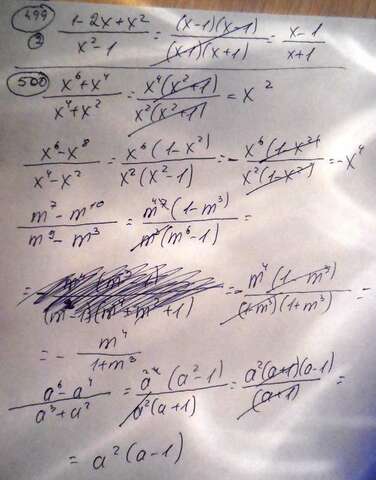 499 2 (1 - 2x + x²)/(x² - 1) = ((x-1)(x-1))/((x-1)(x+1)) = (x-1)/(x+1)
500 (x⁶ + x⁴)/(x⁴ + x²) = (x⁴(x²+1))/(x²(x²+1)) = x²
(x⁶ - x⁸)/(x⁴ - x²) = (x⁶(1-x²))/(x²(x²-1)) = -(x⁶(1-x²))/(x²(1-x²)) = -x⁴
(m⁷ - m¹⁰)/(m⁹ - m³) = (m⁴(1-m³))/(m³(m⁶-1)) =
= = -(m⁴(1-m³))/((1-m³)(1+m³)) =
= -m⁴/(1+m³)
(a⁶ - a⁴)/(a³ + a²) = (a⁴(a²-1))/(a²(a+1)) = (a²(a+1)(a-1))/(a+1) =
= a²(a-1)